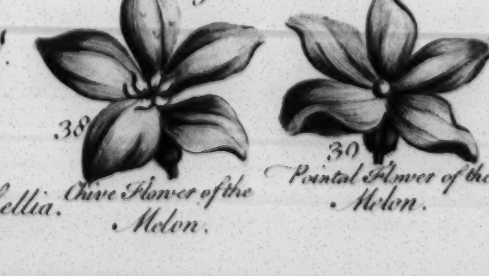 38
39
Chive Flower of the
Melon.
Pointal Flower of the
Melon.
ellia.